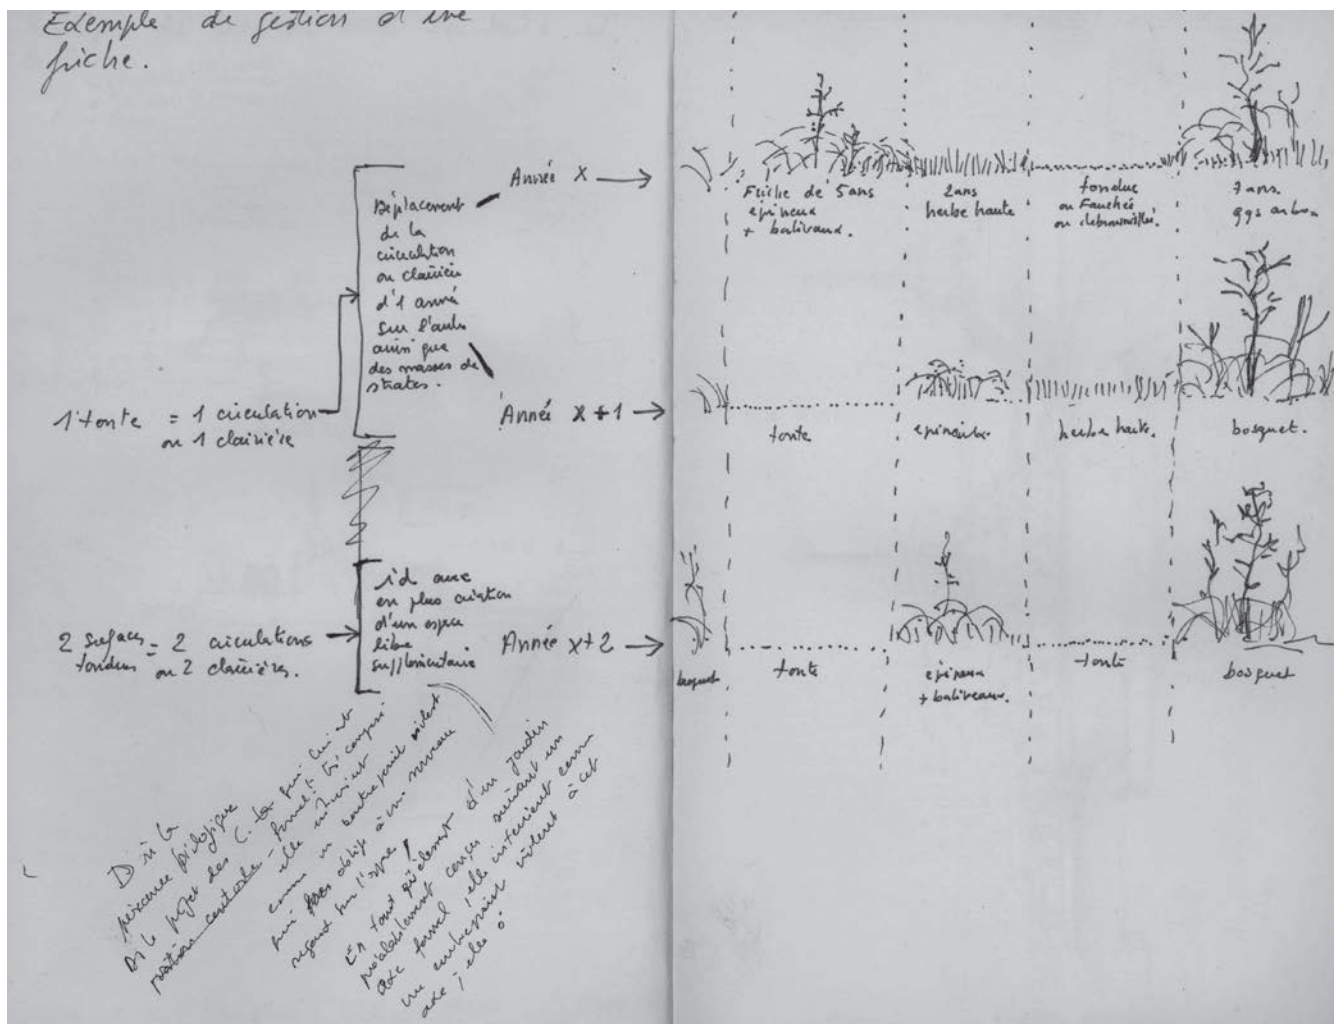 Exemple de gestion d'une
friche.
Déplacement
de la
circulation
ou clairière
d'1 année
sur l'autre
ainsi que
des masses de
strates.
1 tonte = 1 circulation
ou 1 clairière
id avec
en plus création
d'un espace
libre
supplémentaire
2 surfaces = 2 circulations
tondues ou 2 clairières.
Année X →
Friche de 5 ans
épineux
+ baliveaux.
2 ans
herbe haute
tondue
ou Fauchée
ou débroussaillé.
7 ans.
qqs arbres
Année X + 1 →
tonte
épineux.
herbe haute.
bosquet.
Année X+2 →
bosquet
tonte
épineux
+ baliveaux.
tonte
bosquet
présence biologique
le projet des C. la
elle intervient
comme un contrepoint violent
qui oblige à un nouveau
regard sur l'espace
En tant qu'élément d'un jardin
préalablement conçu suivant un
axe formel, elle intervient comme
un contrepoint violent à cet
axe ; elle